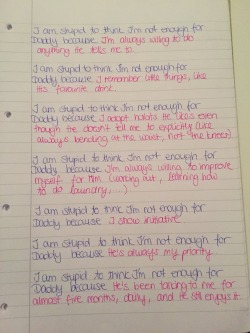 I am stupid to think I'm not enough for
Daddy because I'm always willing to do
anything He tells me to.
I am stupid to think I'm not enough for
Daddy because I remember little things, like
His favourite drink.
I am stupid to think I'm not enough for
Daddy because I adopt habits He likes even
though He doesn't tell me to explicitly (like
always bending at the waist, not the knees)
I am stupid to think I'm not enough for
Daddy because I'm always willing to improve
myself for Him (working out, learning how
to do laundry,....)
I am stupid to think I'm not enough for
Daddy because I show initiative.
I am stupid to think I'm not enough for
Daddy because He's always my priority.
I am stupid to think I'm not enough for
Daddy because He's been talking to me for
almost five months, daily, and He still enjoys it.